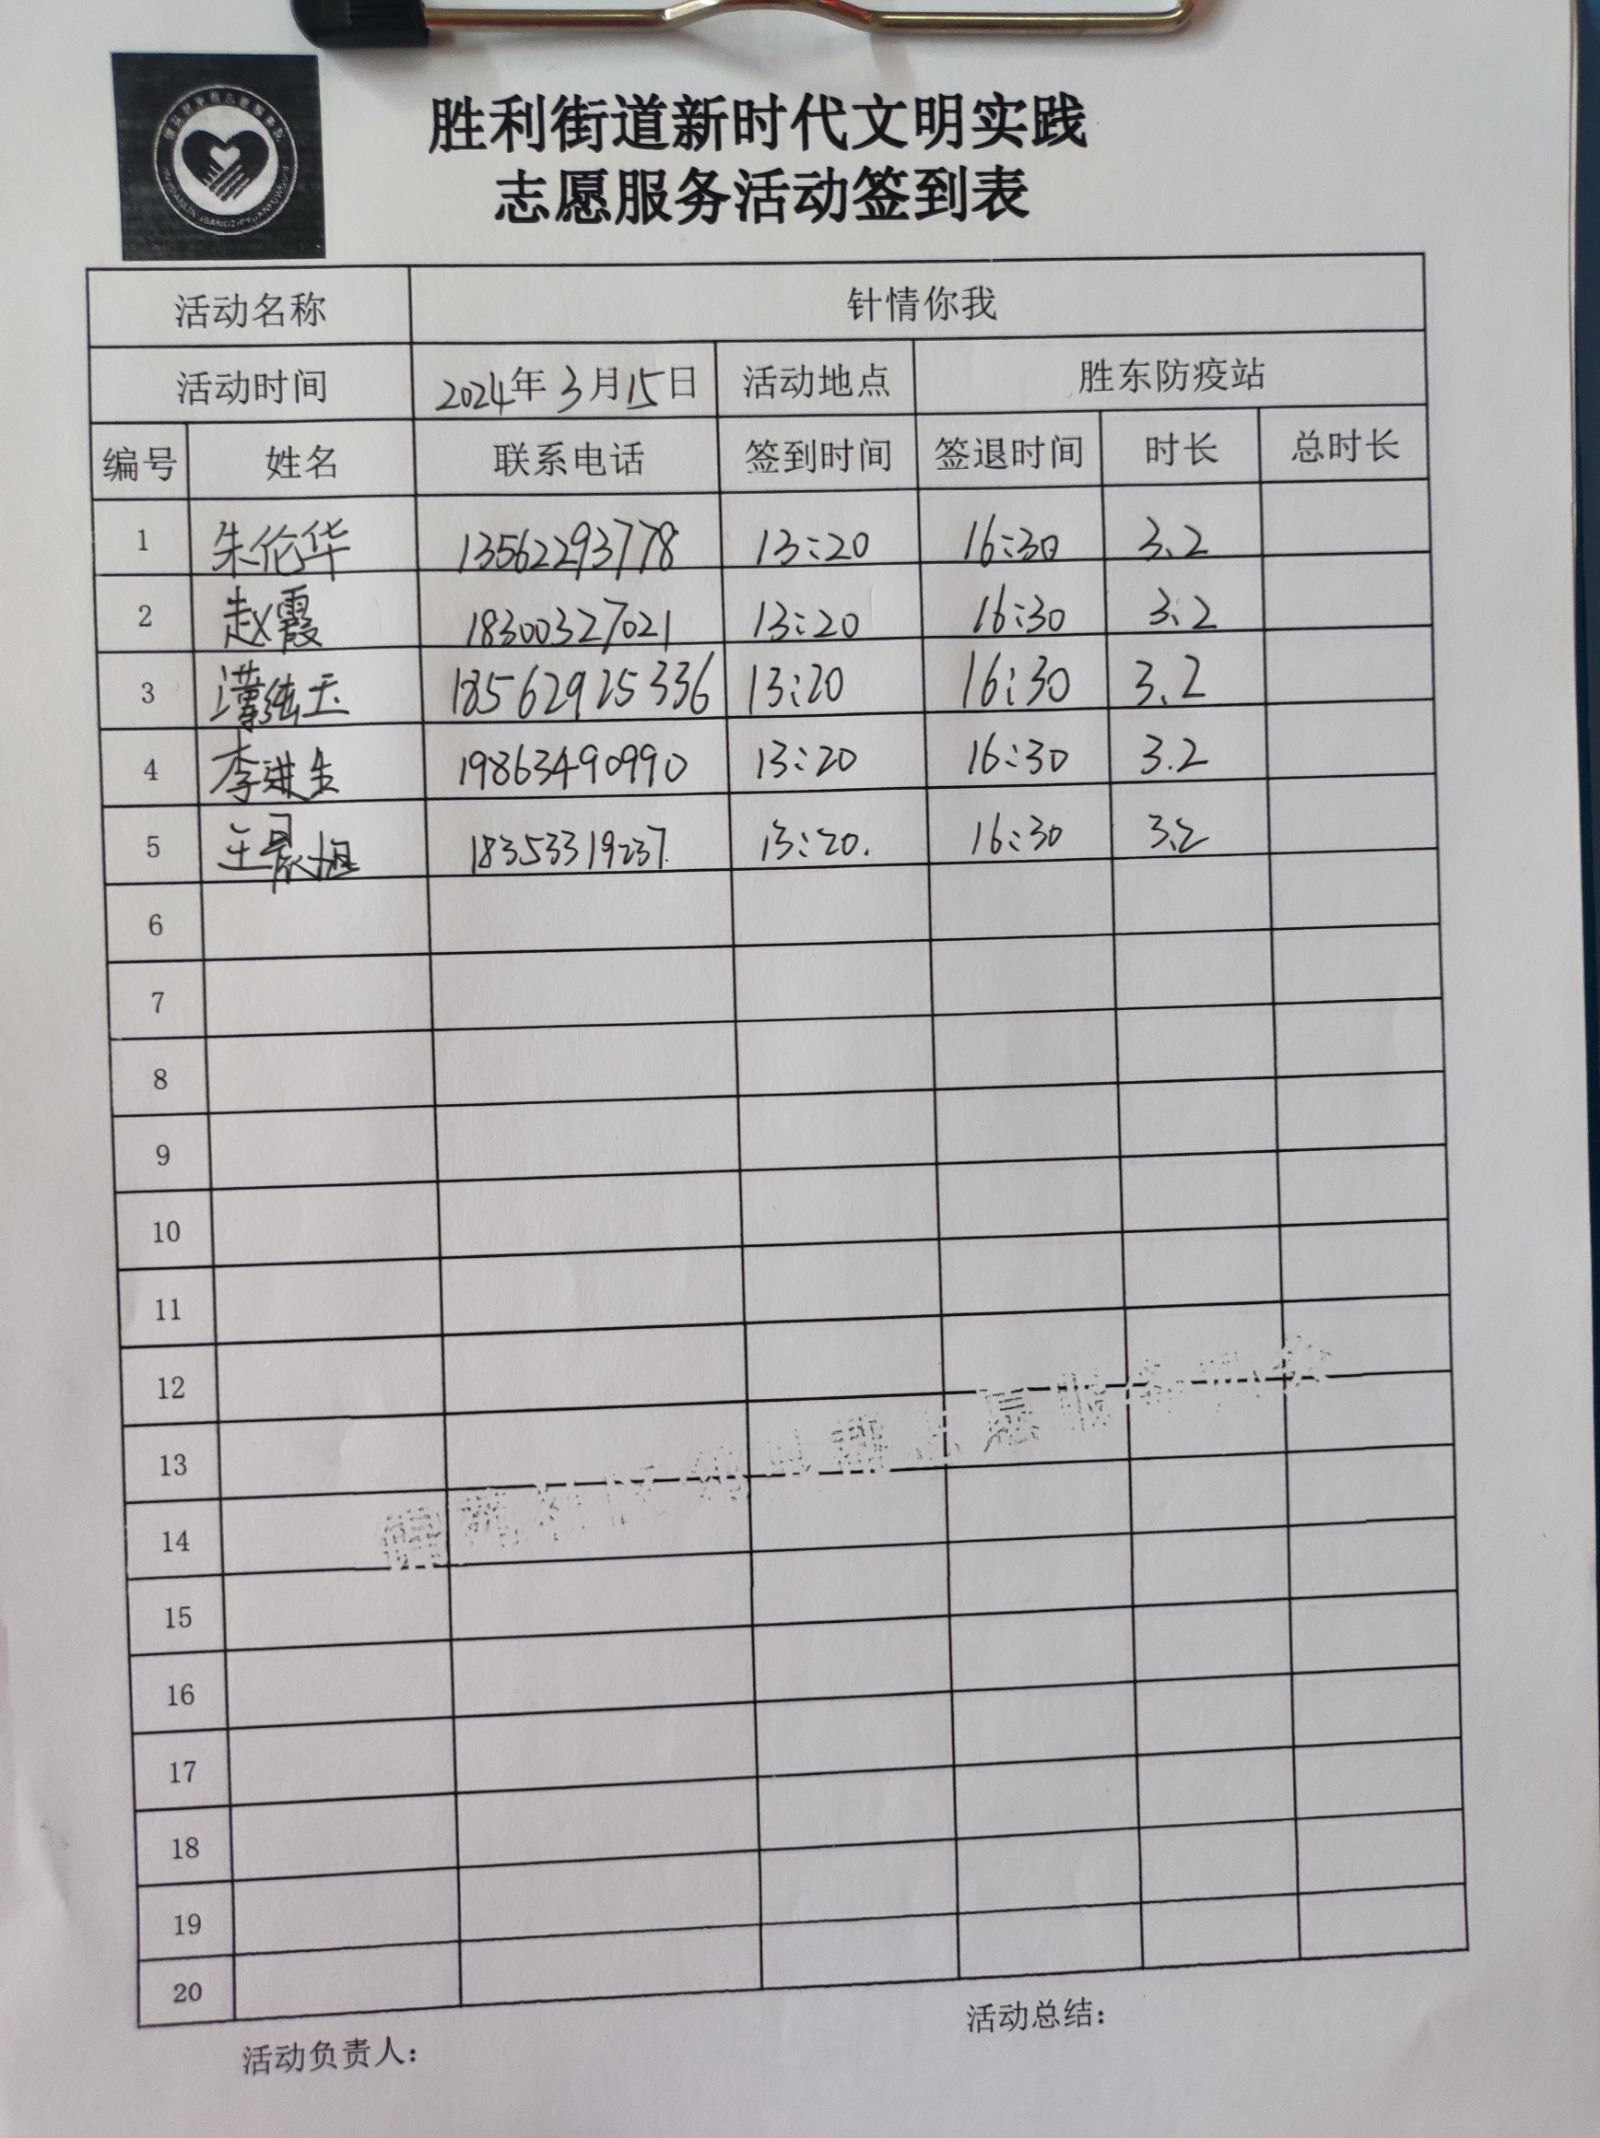 胜利街道新时代文明实践
志愿服务活动签到表
活动名称 针情你我
活动时间 2024年3月15日 活动地点 胜东防疫站
编号 姓名 联系电话 签到时间 签退时间 时长 总时长
1 朱伦华 13562293778 13:20 16:30 3.2
2 赵霞 18300327021 13:20 16:30 3.2
3 18562925336 13:20 16:30 3.2
4 李进生 19863490990 13:20 16:30 3.2
5 王晨旭 18353319237. 13:20. 16:30 3.2
6
7
8
9
10
11
12
13
14
15
16
17
18
19
20
活动负责人： 活动总结：